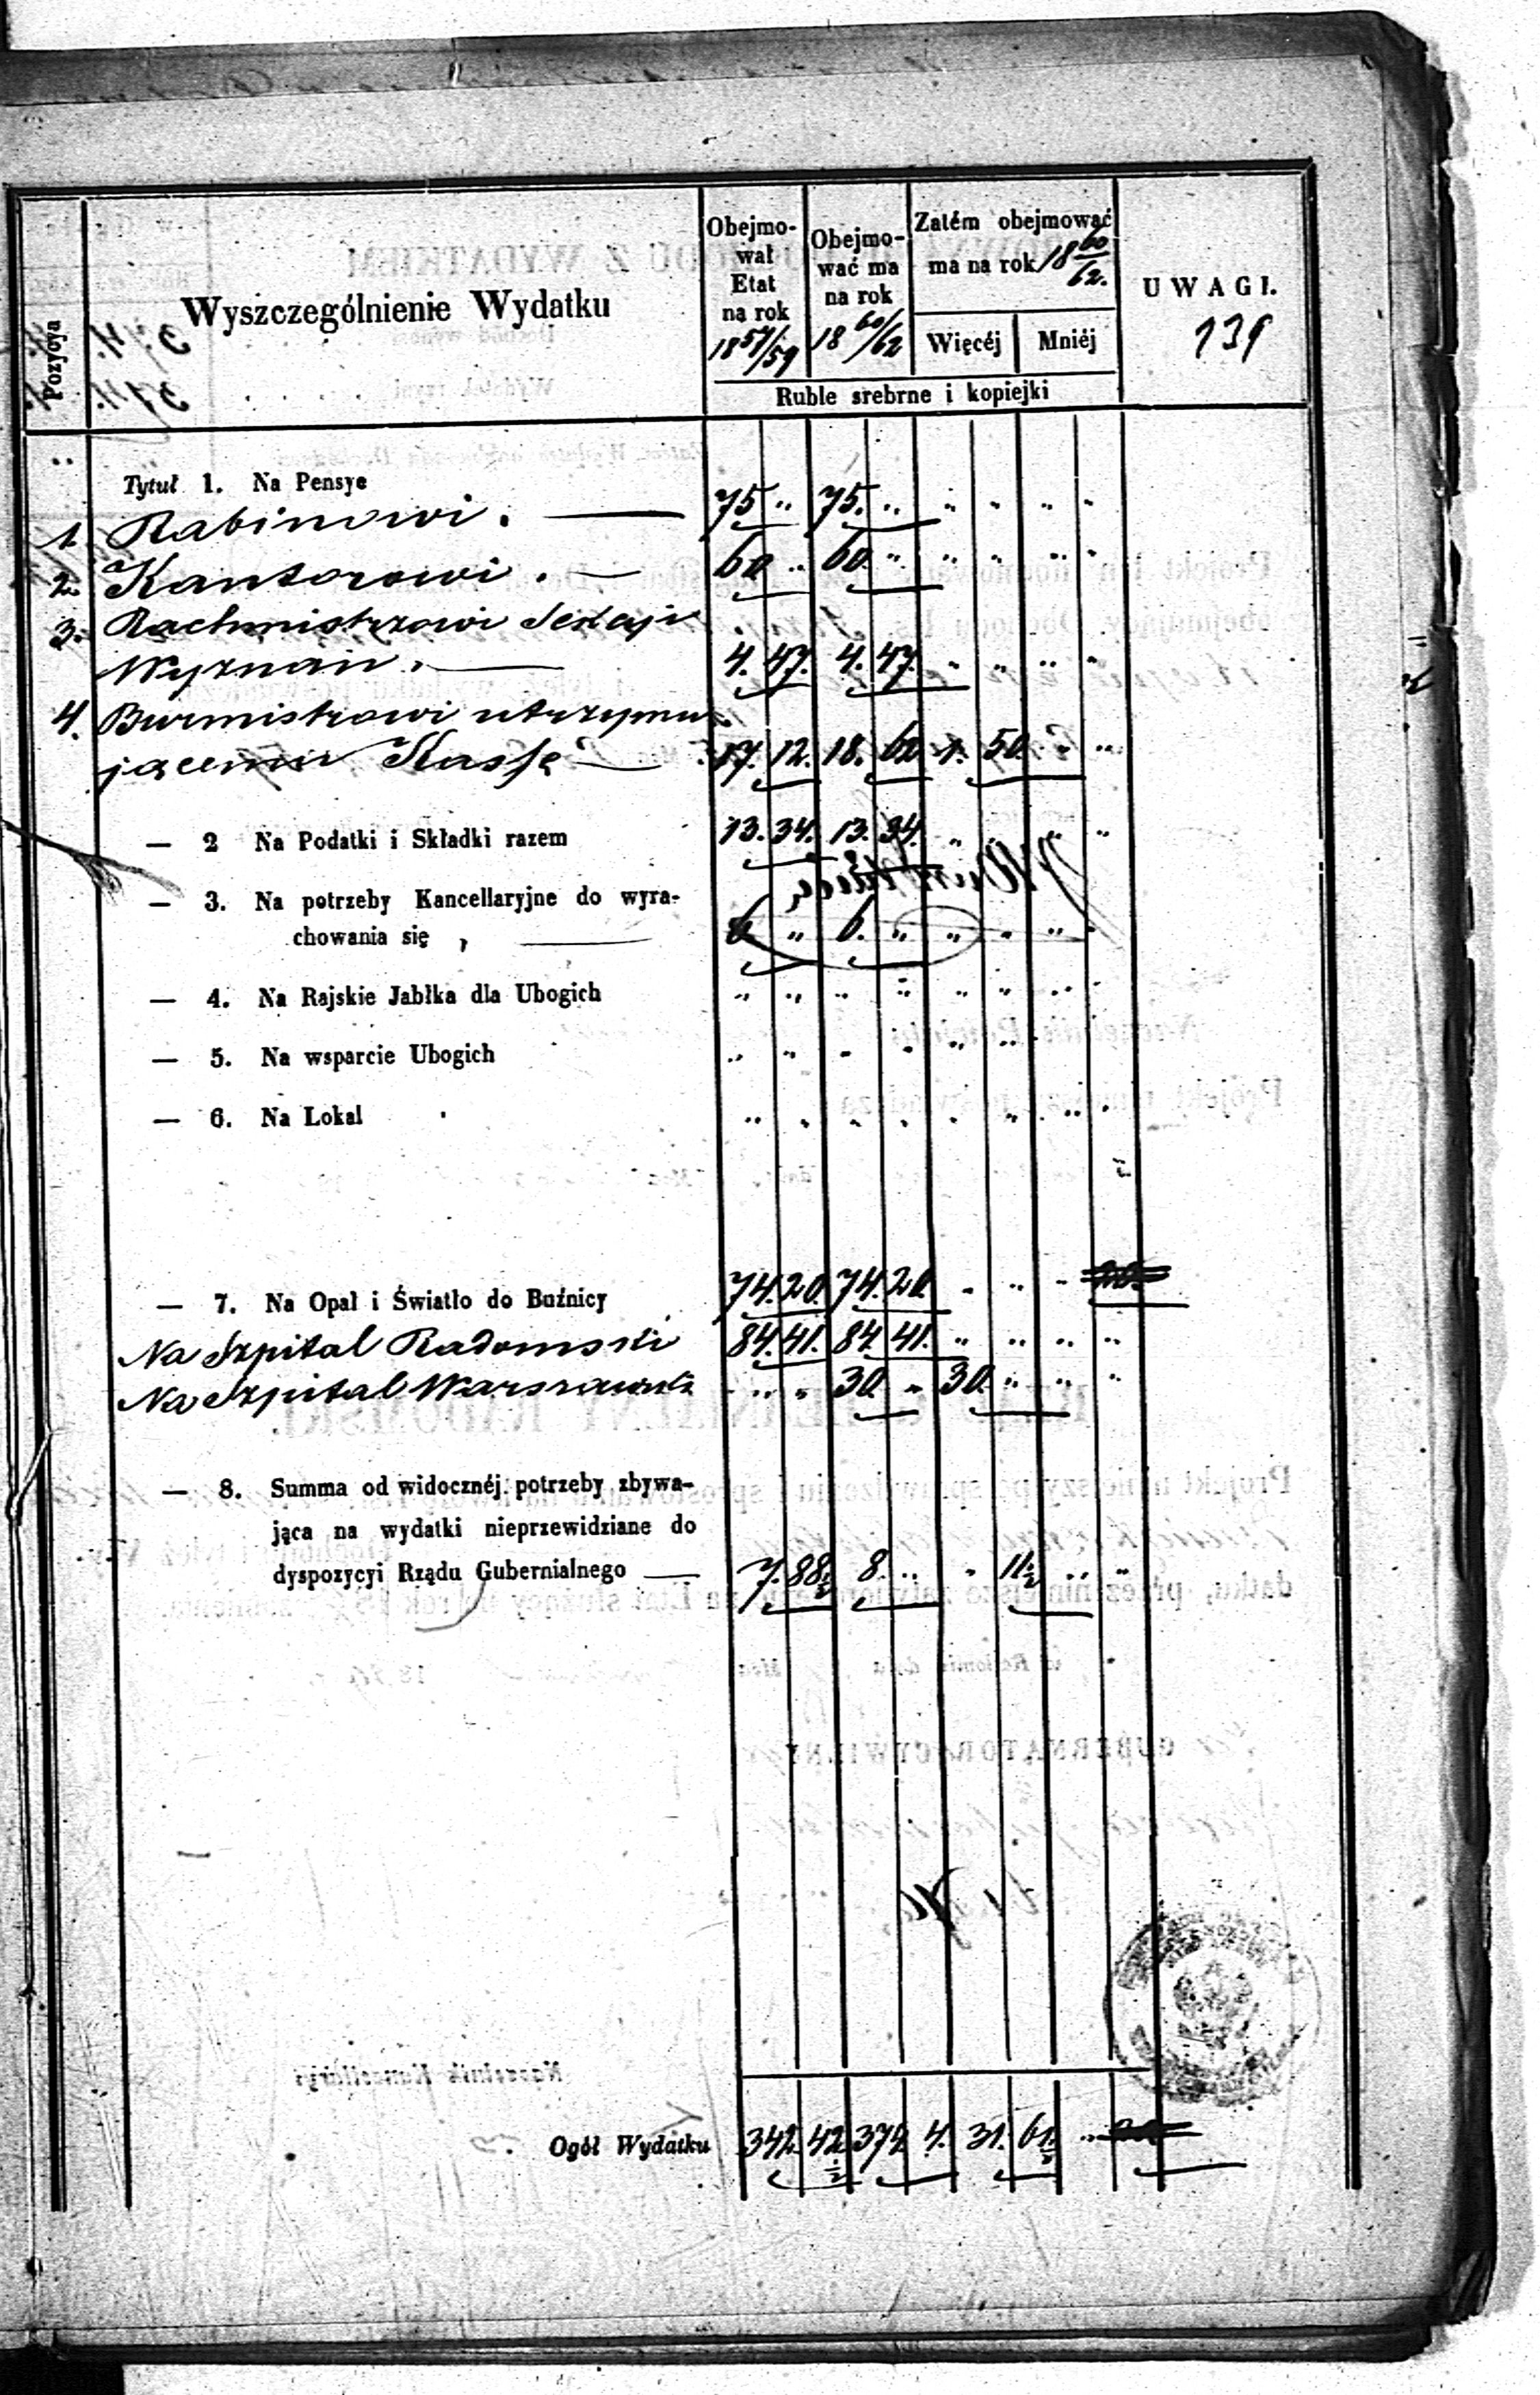 Pozycya
Wyszczególnienie Wydatku
Obejmo-
wał
Etat
na rok
18 57/59
Obejmo-
wać ma
na rok
18 60/62
Zatém obejmować
ma na rok 18 60/62.
Więcéj Mniéj
Ruble srebrne i kopiejki
UWAGI.
139
Tytuł 1. Na Pensye
1. Rabinowi. — 75 „ 75. „ „ „ „ „
2. Kantorowi. — 60 „ 60. „ „ „ „ „
3. Rachmistrzowi Sekcyi
Wyznań. — 4. 47. 4. 47. „ „ „ „
4. Burmistrowi utrzymu
jącemu Kassę — 17. 12. 18. 62 1. 50. „ „
— 2 Na Podatki i Składki razem 13. 34. 13. 34. „ „ „ „
— 3. Na potrzeby Kancellaryjne do wyra-
chowania się, — 6 „ 6. „ „ „ „ „
— 4. Na Rajskie Jabłka dla Ubogich „ „ „ „ „ „ „ „
— 5. Na wsparcie Ubogich „ „ „ „ „ „ „
— 6. Na Lokal „ „ „ „ „ „ „ „
— 7. Na Opał i Światło do Buźnicy 74. 20. 74. 20. „ „ „
Na Szpital Radomski 84. 41. 84 41. „ „ „ „
Na Szpital Warszawski „ „ 30. „ 30. „ „ „
— 8. Summa od widocznéj potrzeby zbywa-
jąca na wydatki nieprzewidziane do
dyspozycyi Rządu Gubernialnego — 7. 88½ 8. „ „ 11½ „ „
Ogół Wydatku 342 42½ 374 4. 31. 61½ „